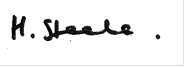 H. Steele .